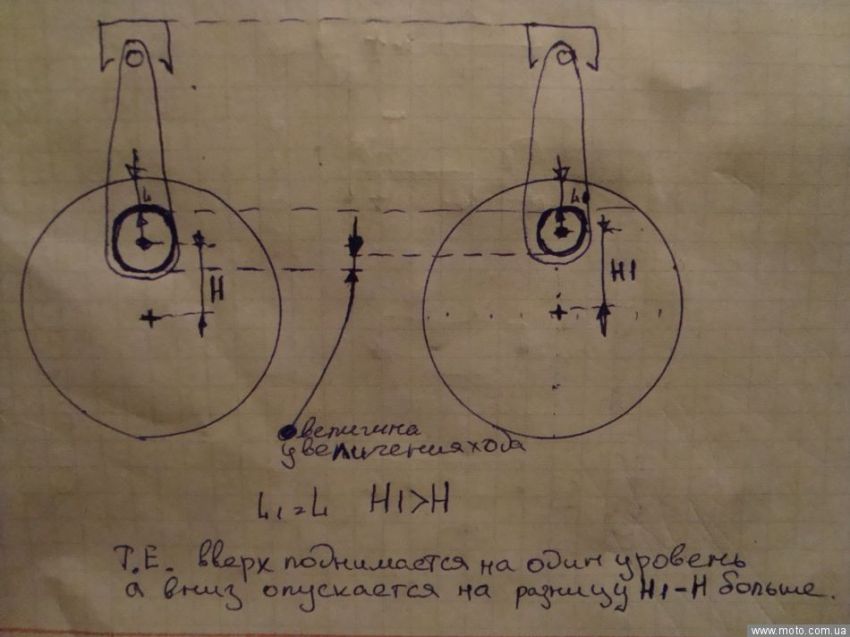 L
L1
H
H1
величина
увеличения хода
L1=L H1>H
Т.Е. вверх поднимается на один уровень
а вниз опускается на разницу H1-H больше.
www.moto.com.ua